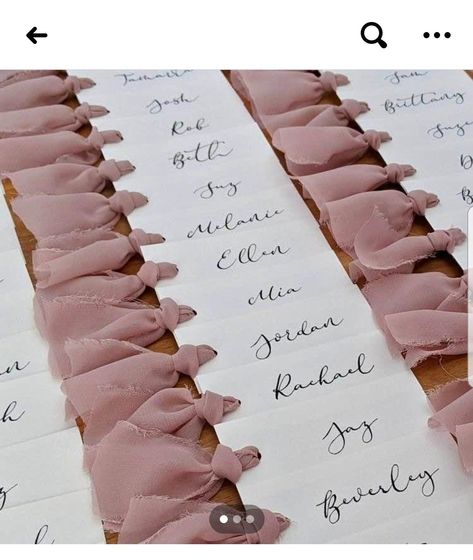 Tamara
Josh
Rob
Beth
Suz
Melanie
Ellen
Mia
Jordan
Rachael
Jaz
Beverley
Sam
Brittany
Suzie